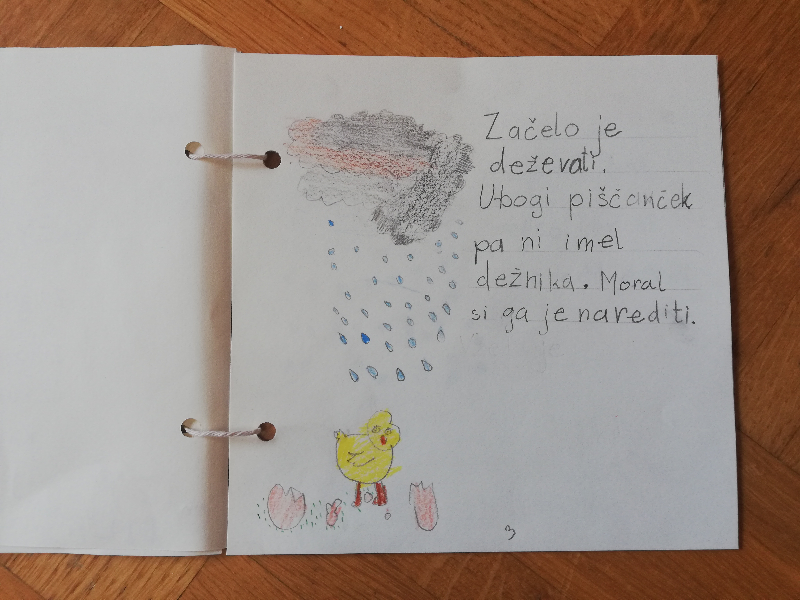 Začelo je
deževati.
Ubogi piščanček
pa ni imel
dežnika. Moral
si ga je narediti.
3